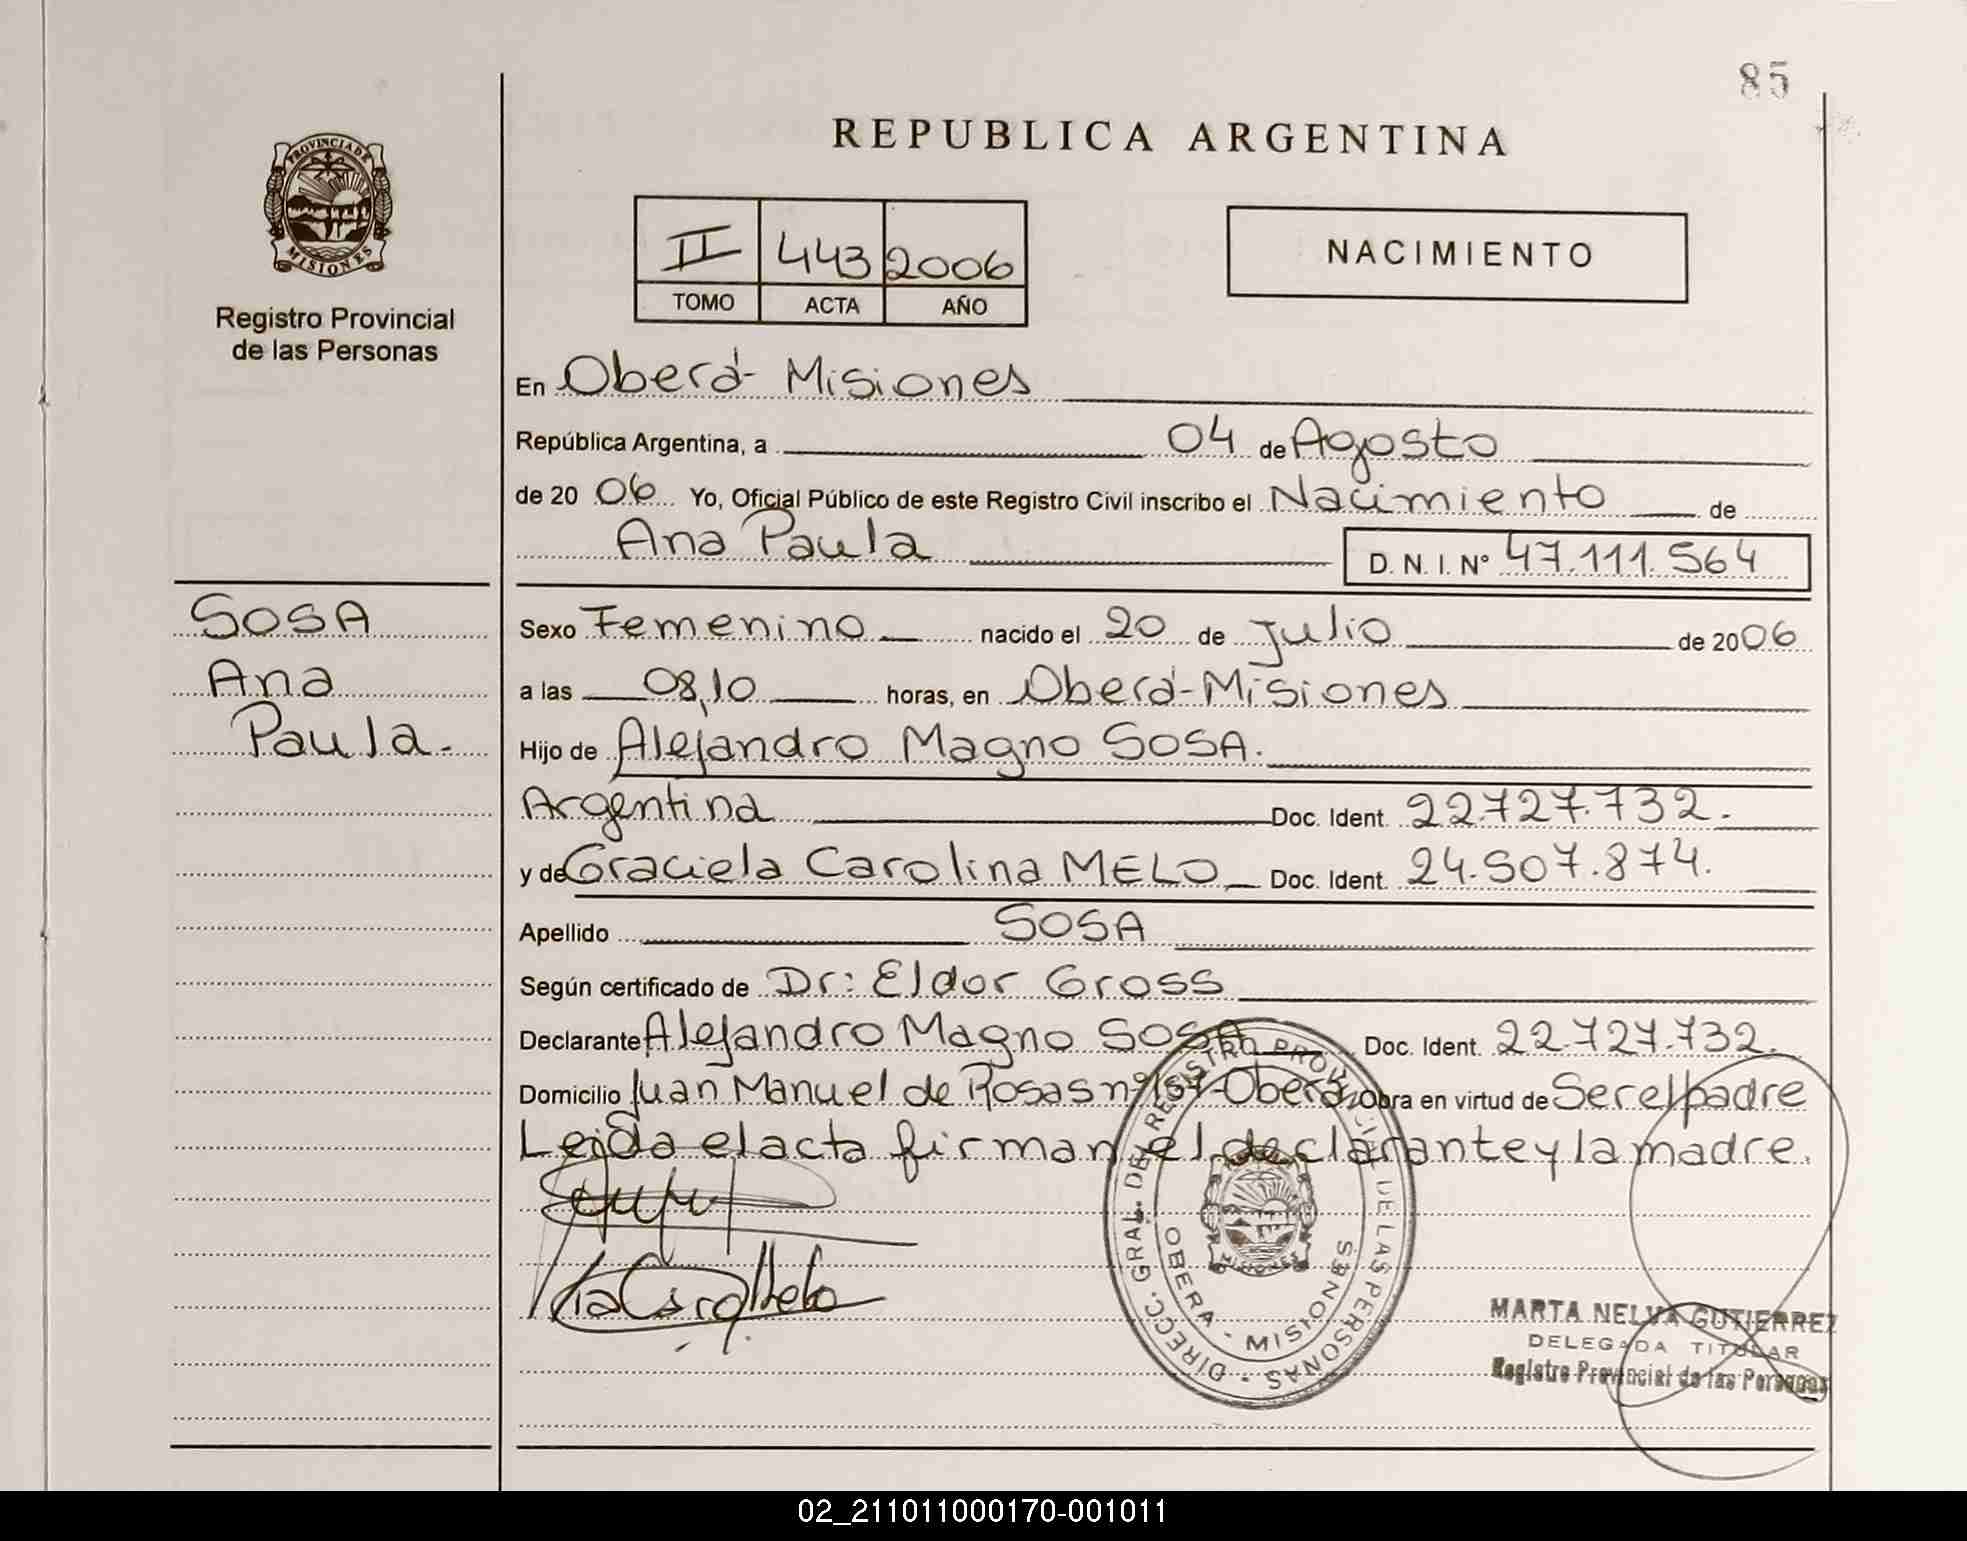 85
REPUBLICA ARGENTINA
PROVINCIA DE
MISIONES
Registro Provincial
de las Personas
II 443 2006
TOMO ACTA AÑO
NACIMIENTO
En Oberá - Misiones
República Argentina, a 04 de Agosto
de 20 06 Yo, Oficial Público de este Registro Civil inscribo el Nacimiento de
Ana Paula D. N. I. Nº 47.111.564
SOSA
Ana
Paula.-
Sexo Femenino nacido el 20 de Julio de 2006
a las 08,10 horas, en Oberá - Misiones
Hijo de Alejandro Magno SOSA.
Argentina Doc. Ident. 22.727.732.-
y de Graciela Carolina MELO Doc. Ident. 24.507.874.
Apellido SOSA
Según certificado de Dr: Eldor Gross
Declarante Alejandro Magno SOSA Doc. Ident. 22.727.732.
Domicilio Juan Manuel de Rosas nº 157 - Oberá Obra en virtud de Ser el padre
Leida el acta firman el declarante y la madre.
DIRECC. GRAL. DEL REGISTRO PROVINCIAL DE LAS PERSONAS
OBERA - MISIONES
MARTA NELVA GUTIERREZ
DELEGADA TITULAR
Registro Provincial de las Personas
02_211011000170-001011